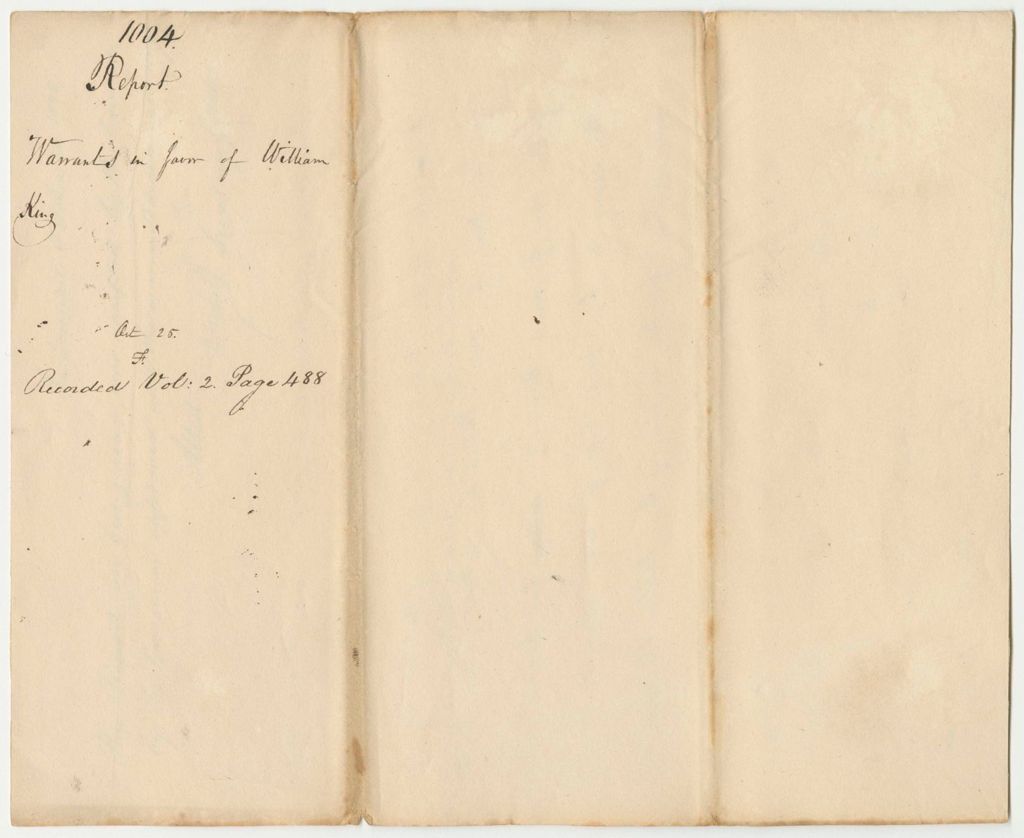 1004.
Report.
Warrants in favor of William
King
Oct 25.
F.
Recorded Vol: 2. Page 488